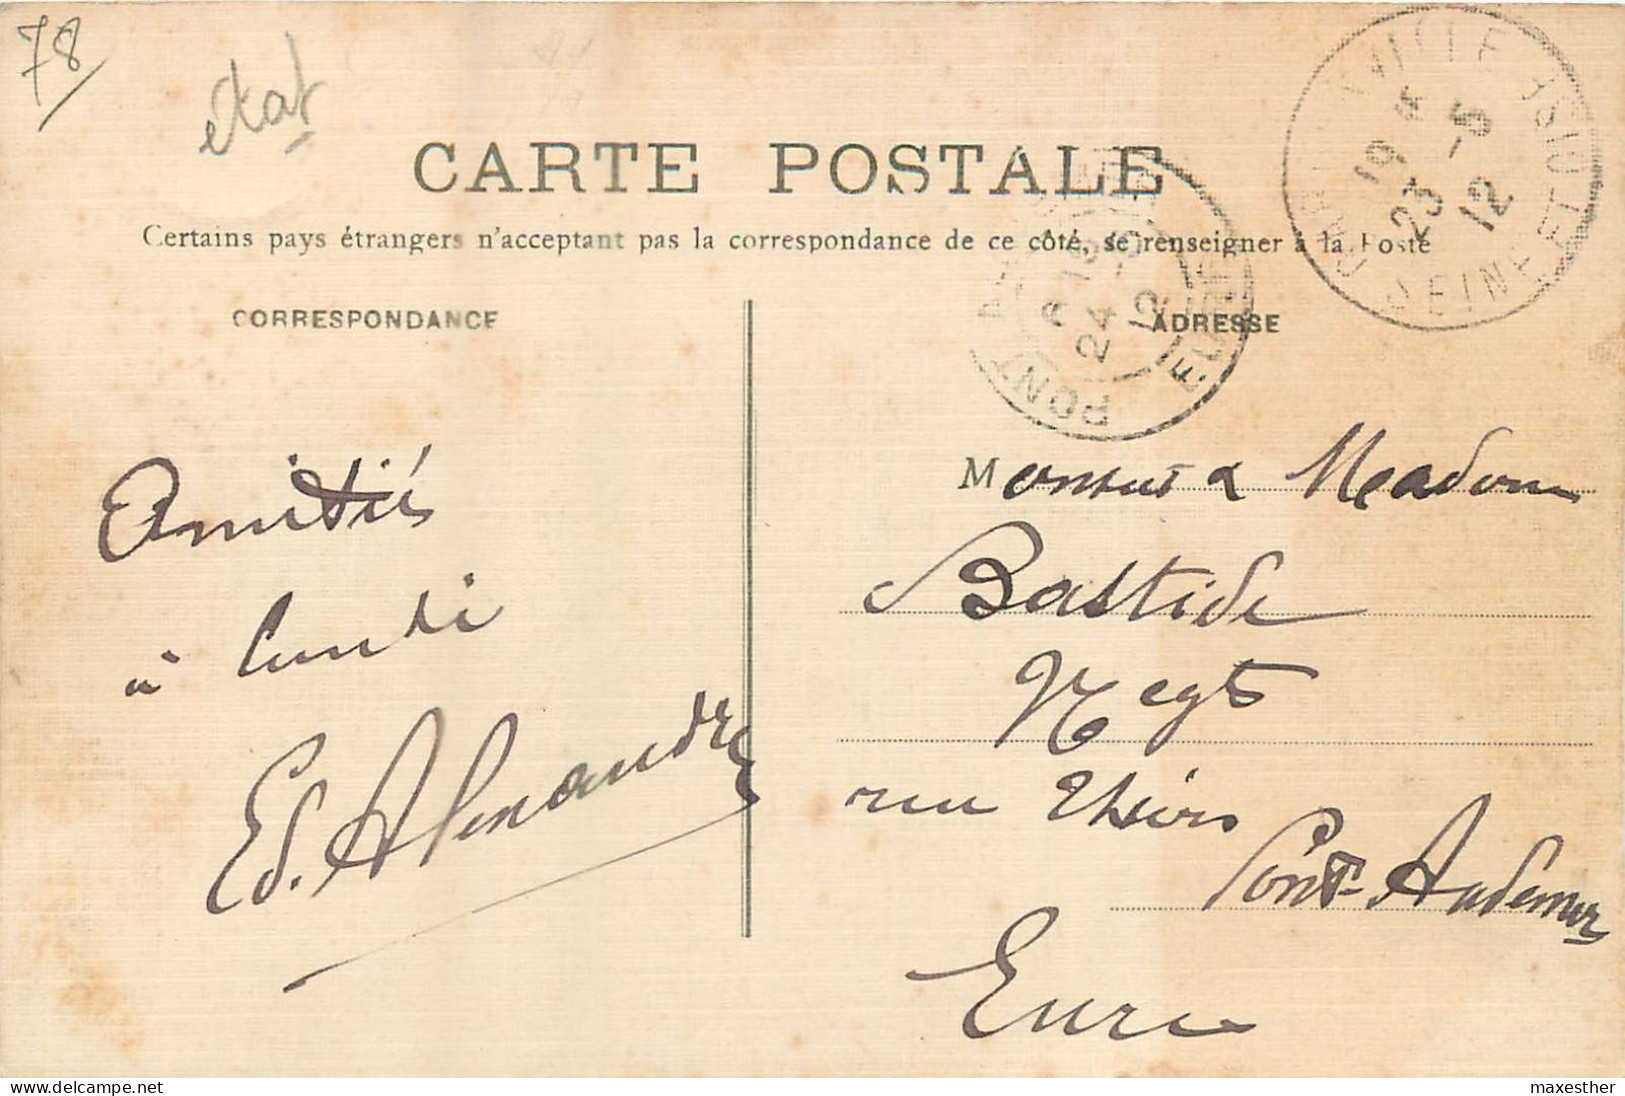 78
état
CARTE POSTALE
Certains pays étrangers n'acceptant pas la correspondance de ce côté, se renseigner à la Poste
CORRESPONDANCE
ADRESSE
SEINE ET OISE
23 -5 12
PONT
24 -5 12
EURE
Amitiés
à lundi
Ed. Alexandre
Monsieur & Madame
Bastide
Negts
rue Thiers
Pont-Audemer
Eure
www.delcampe.net
maxesther